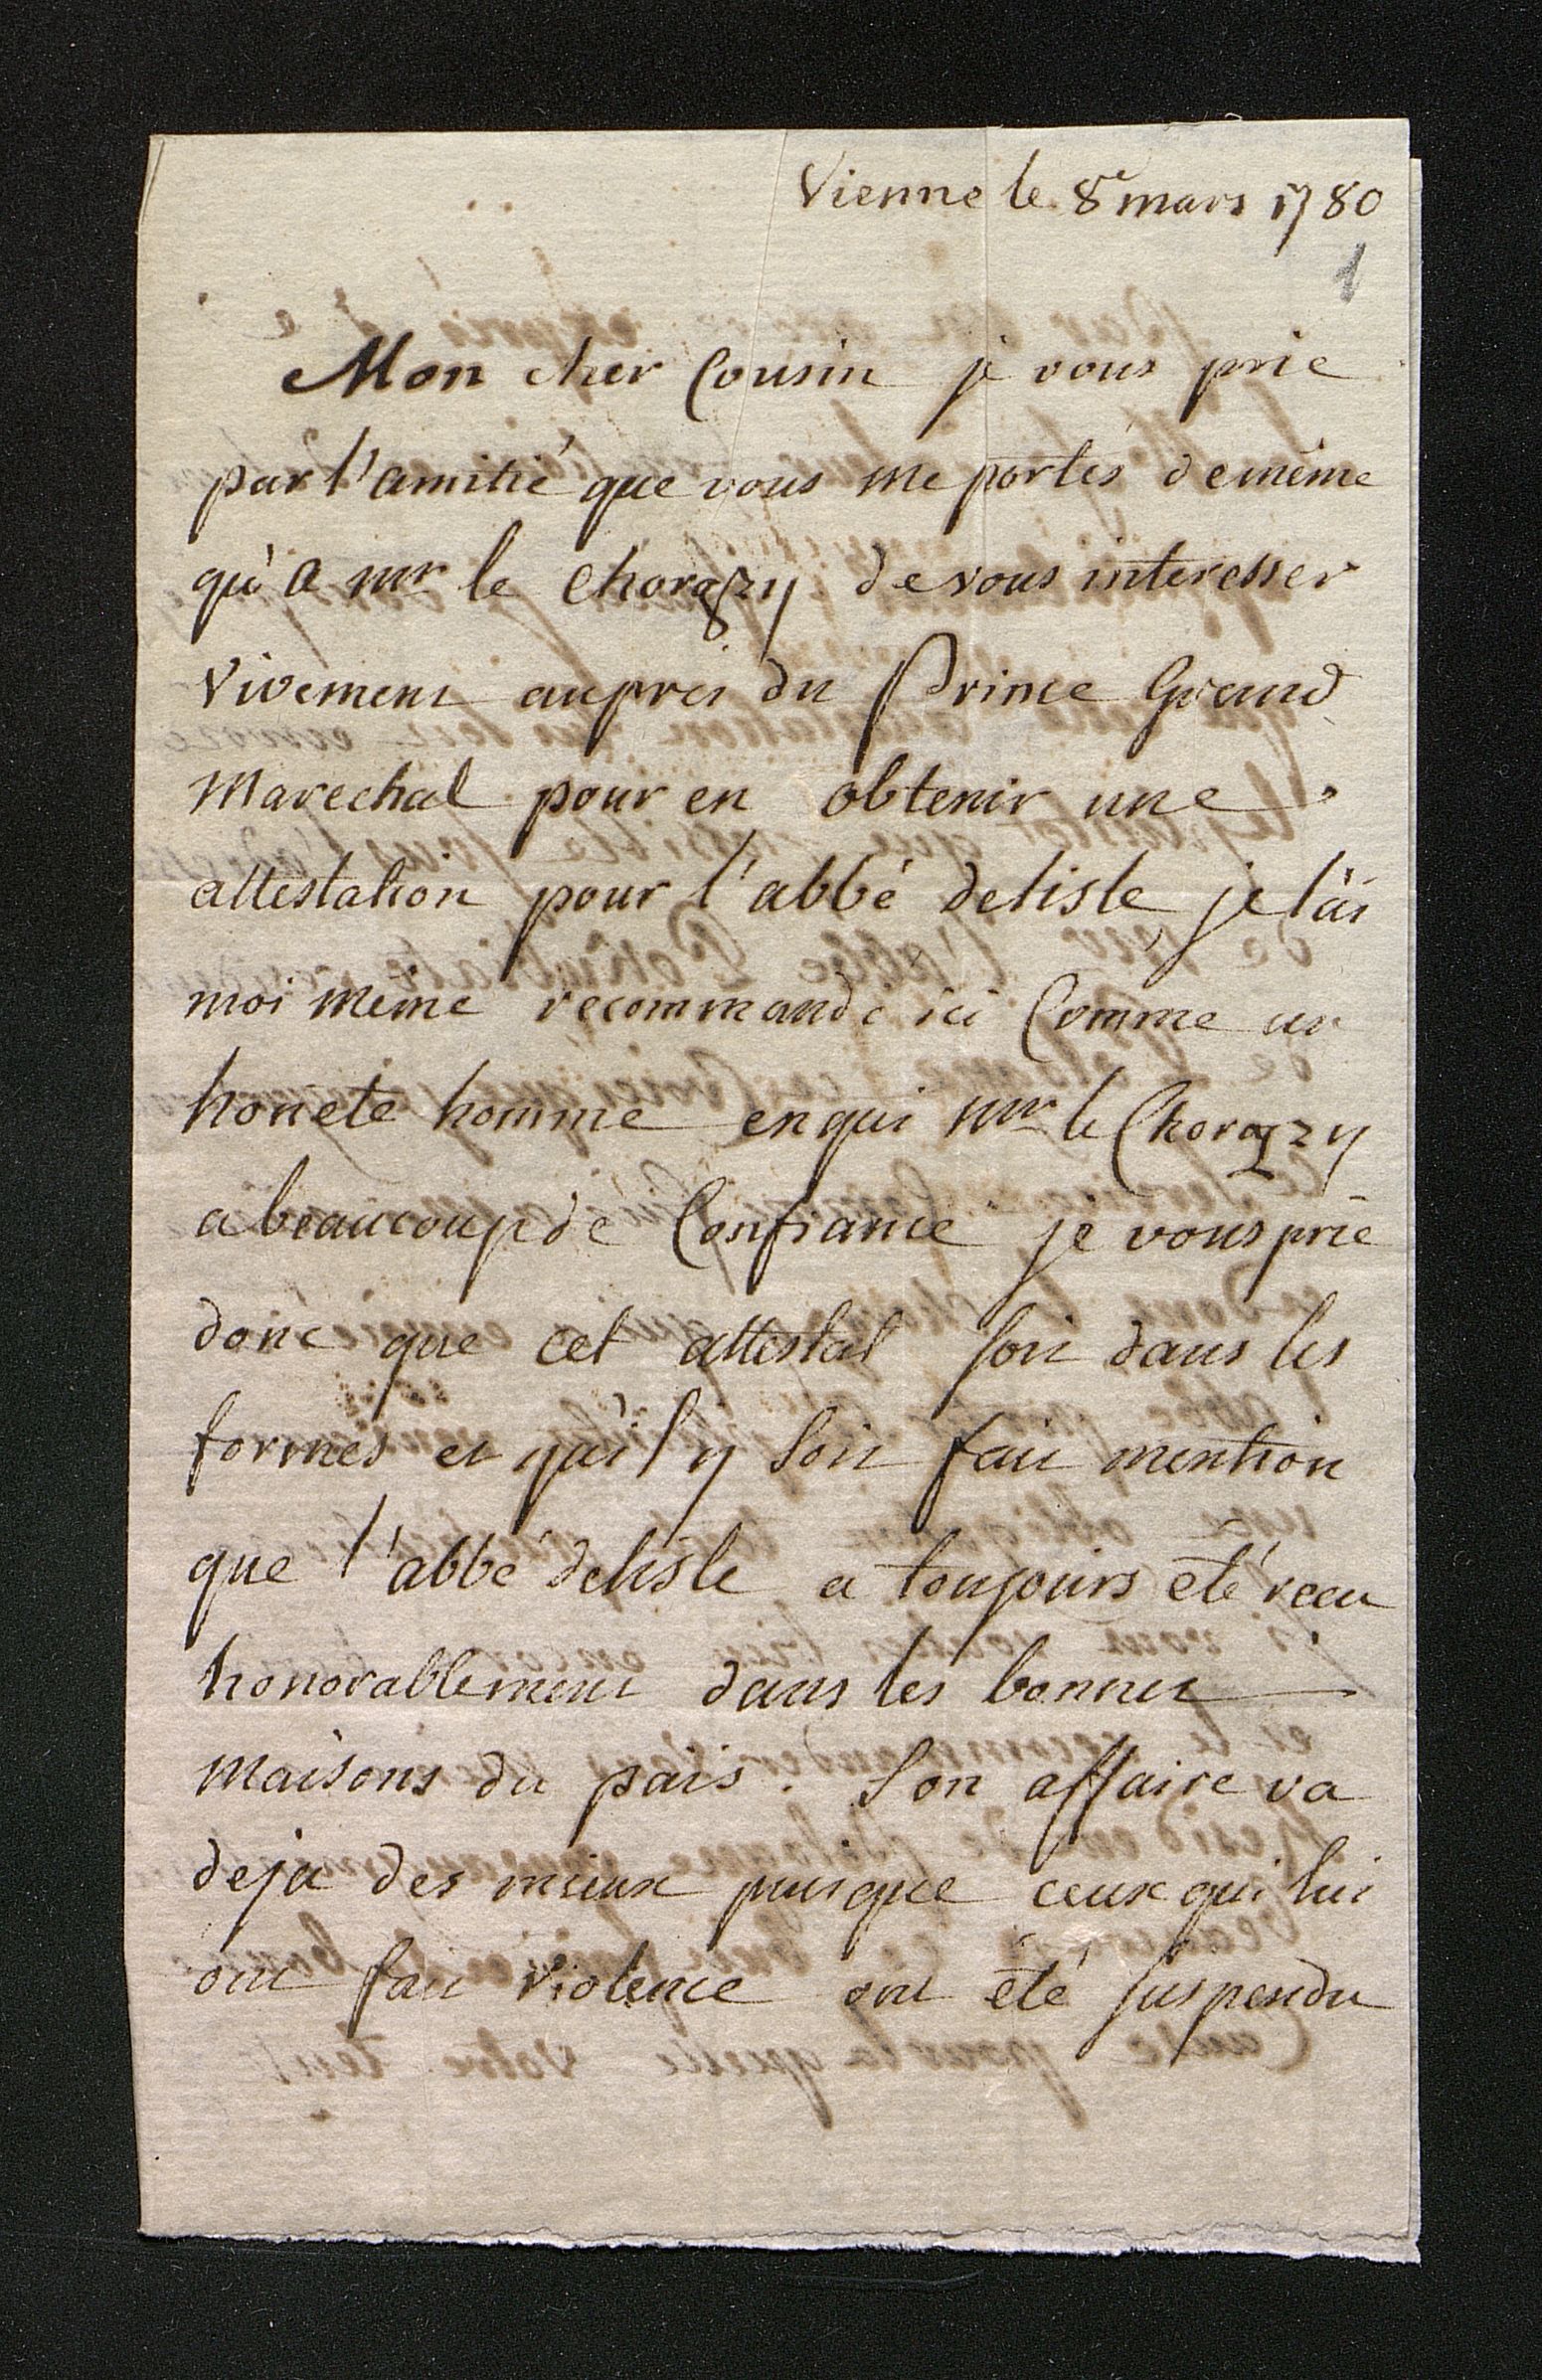 Vienne le 8e mars 1780
1
Mon cher Cousin je vous prie
par l'amitié que vous me portés de même
qu'a mr le Chorązy de vous interesser
Vivement aupres du Prince Grand
Marechal pour en obtenir une
attestation pour l'abbé delisle, je l'ai
moi même recommandé ici Comme un
honete homme en qui mr le Chorązy
a beaucoup de Confiance je vous prie
donc que cet attestat soit dans les
formes et qu'il y soit fait mention
que l'abbé delisle a toujours été recu
honorablement dans les bonnes
maisons du païs. Son affaire va
deja des mieux puisque ceux qui lui
ont fait violence ont été suspendu